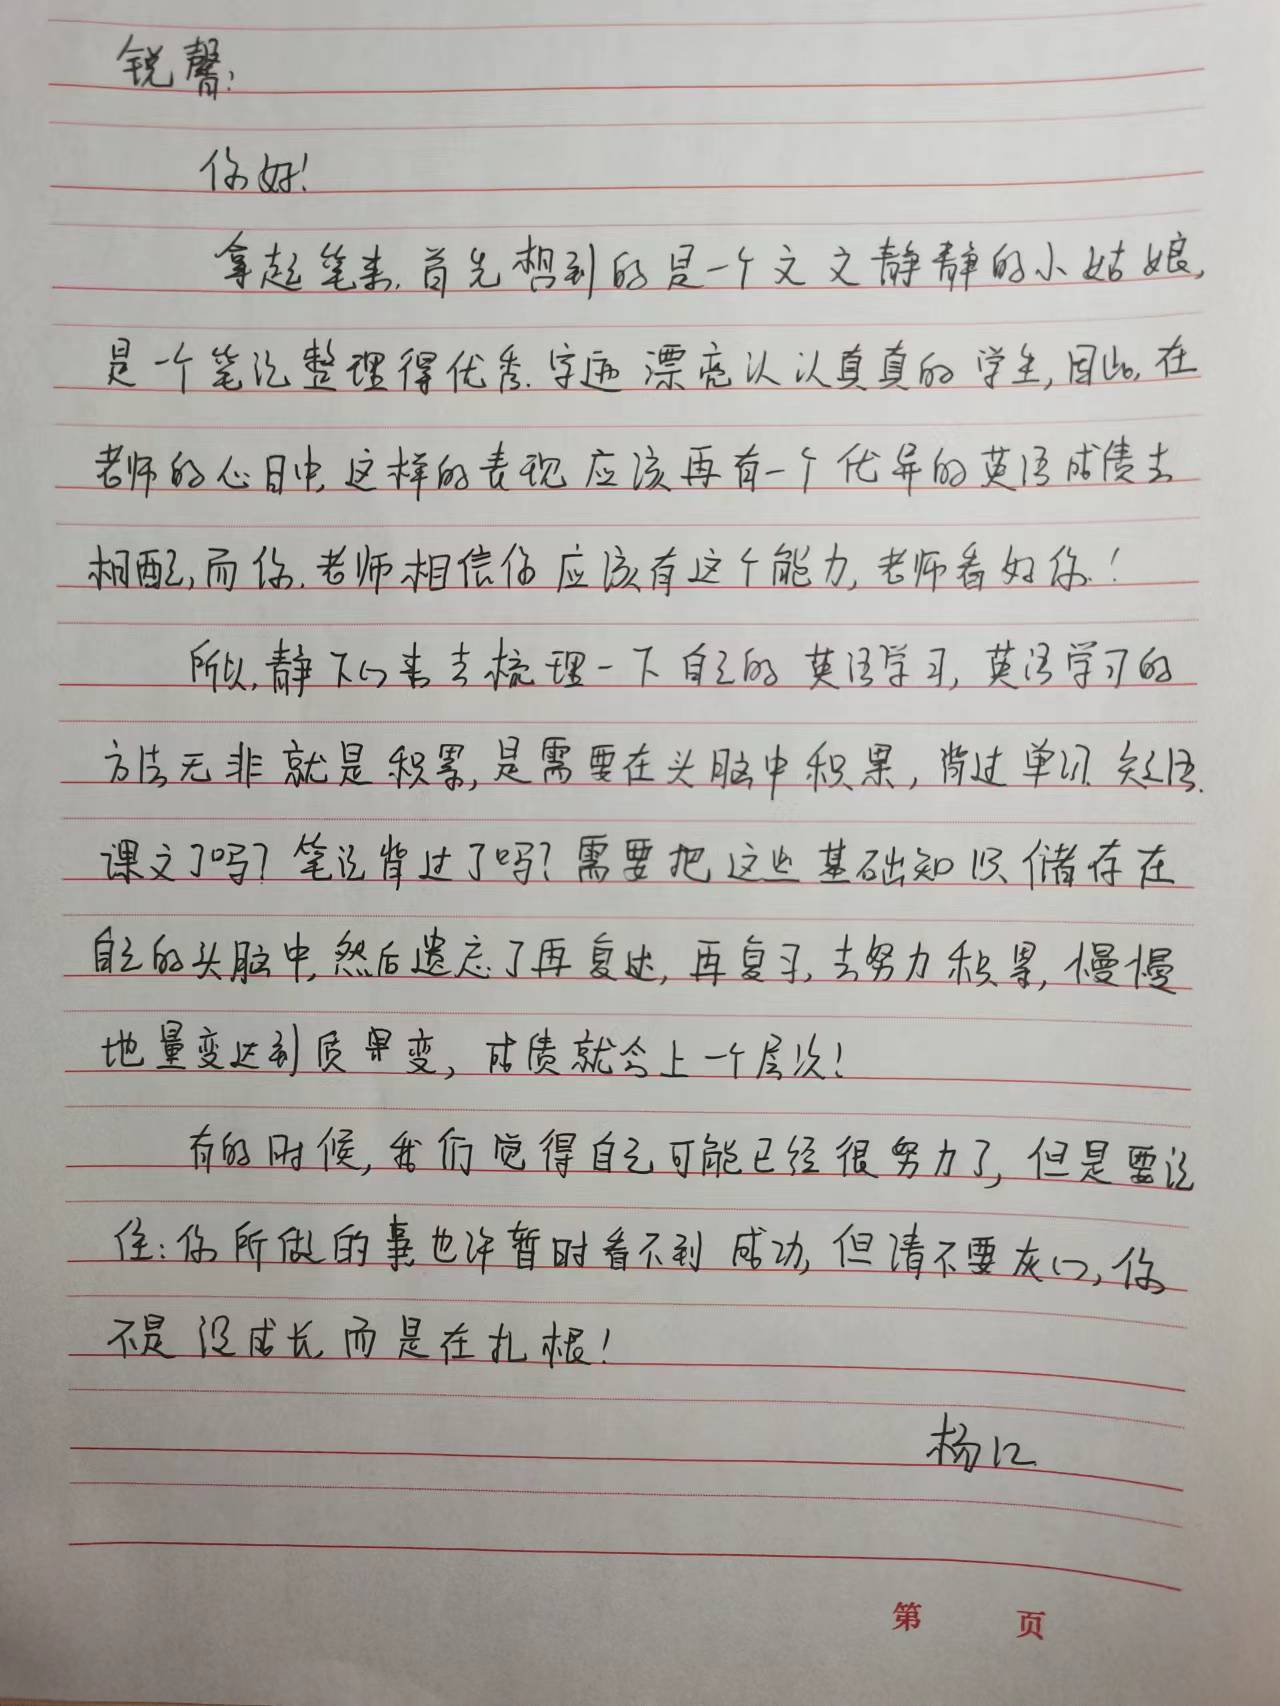 锐馨:
你好!
拿起笔来,首先想到的是一个文文静静的小姑娘,
是一个笔记整理得优秀,字迹漂亮认认真真的学生,因此,在
老师的心目中,这样的表现应该再有一个优异的英语成绩去
相配,而你,老师相信你应该有这个能力,老师看好你!
所以,静下心来去梳理一下自己的英语学习,英语学习的
方法无非就是积累,是需要在头脑中积累,背过单词、短语、
课文了吗?笔记背过了吗?需要把这些基础知识储存在
自己的头脑中,然后遗忘了再复述,再复习,去努力积累,慢慢
地量变达到质变,成绩就会上一个层次!
有的时候,我们觉得自己可能已经很努力了,但是要记
住:你所做的事也许暂时看不到成功,但请不要灰心,你
不是没成长,而是在扎根!
杨江
第 页